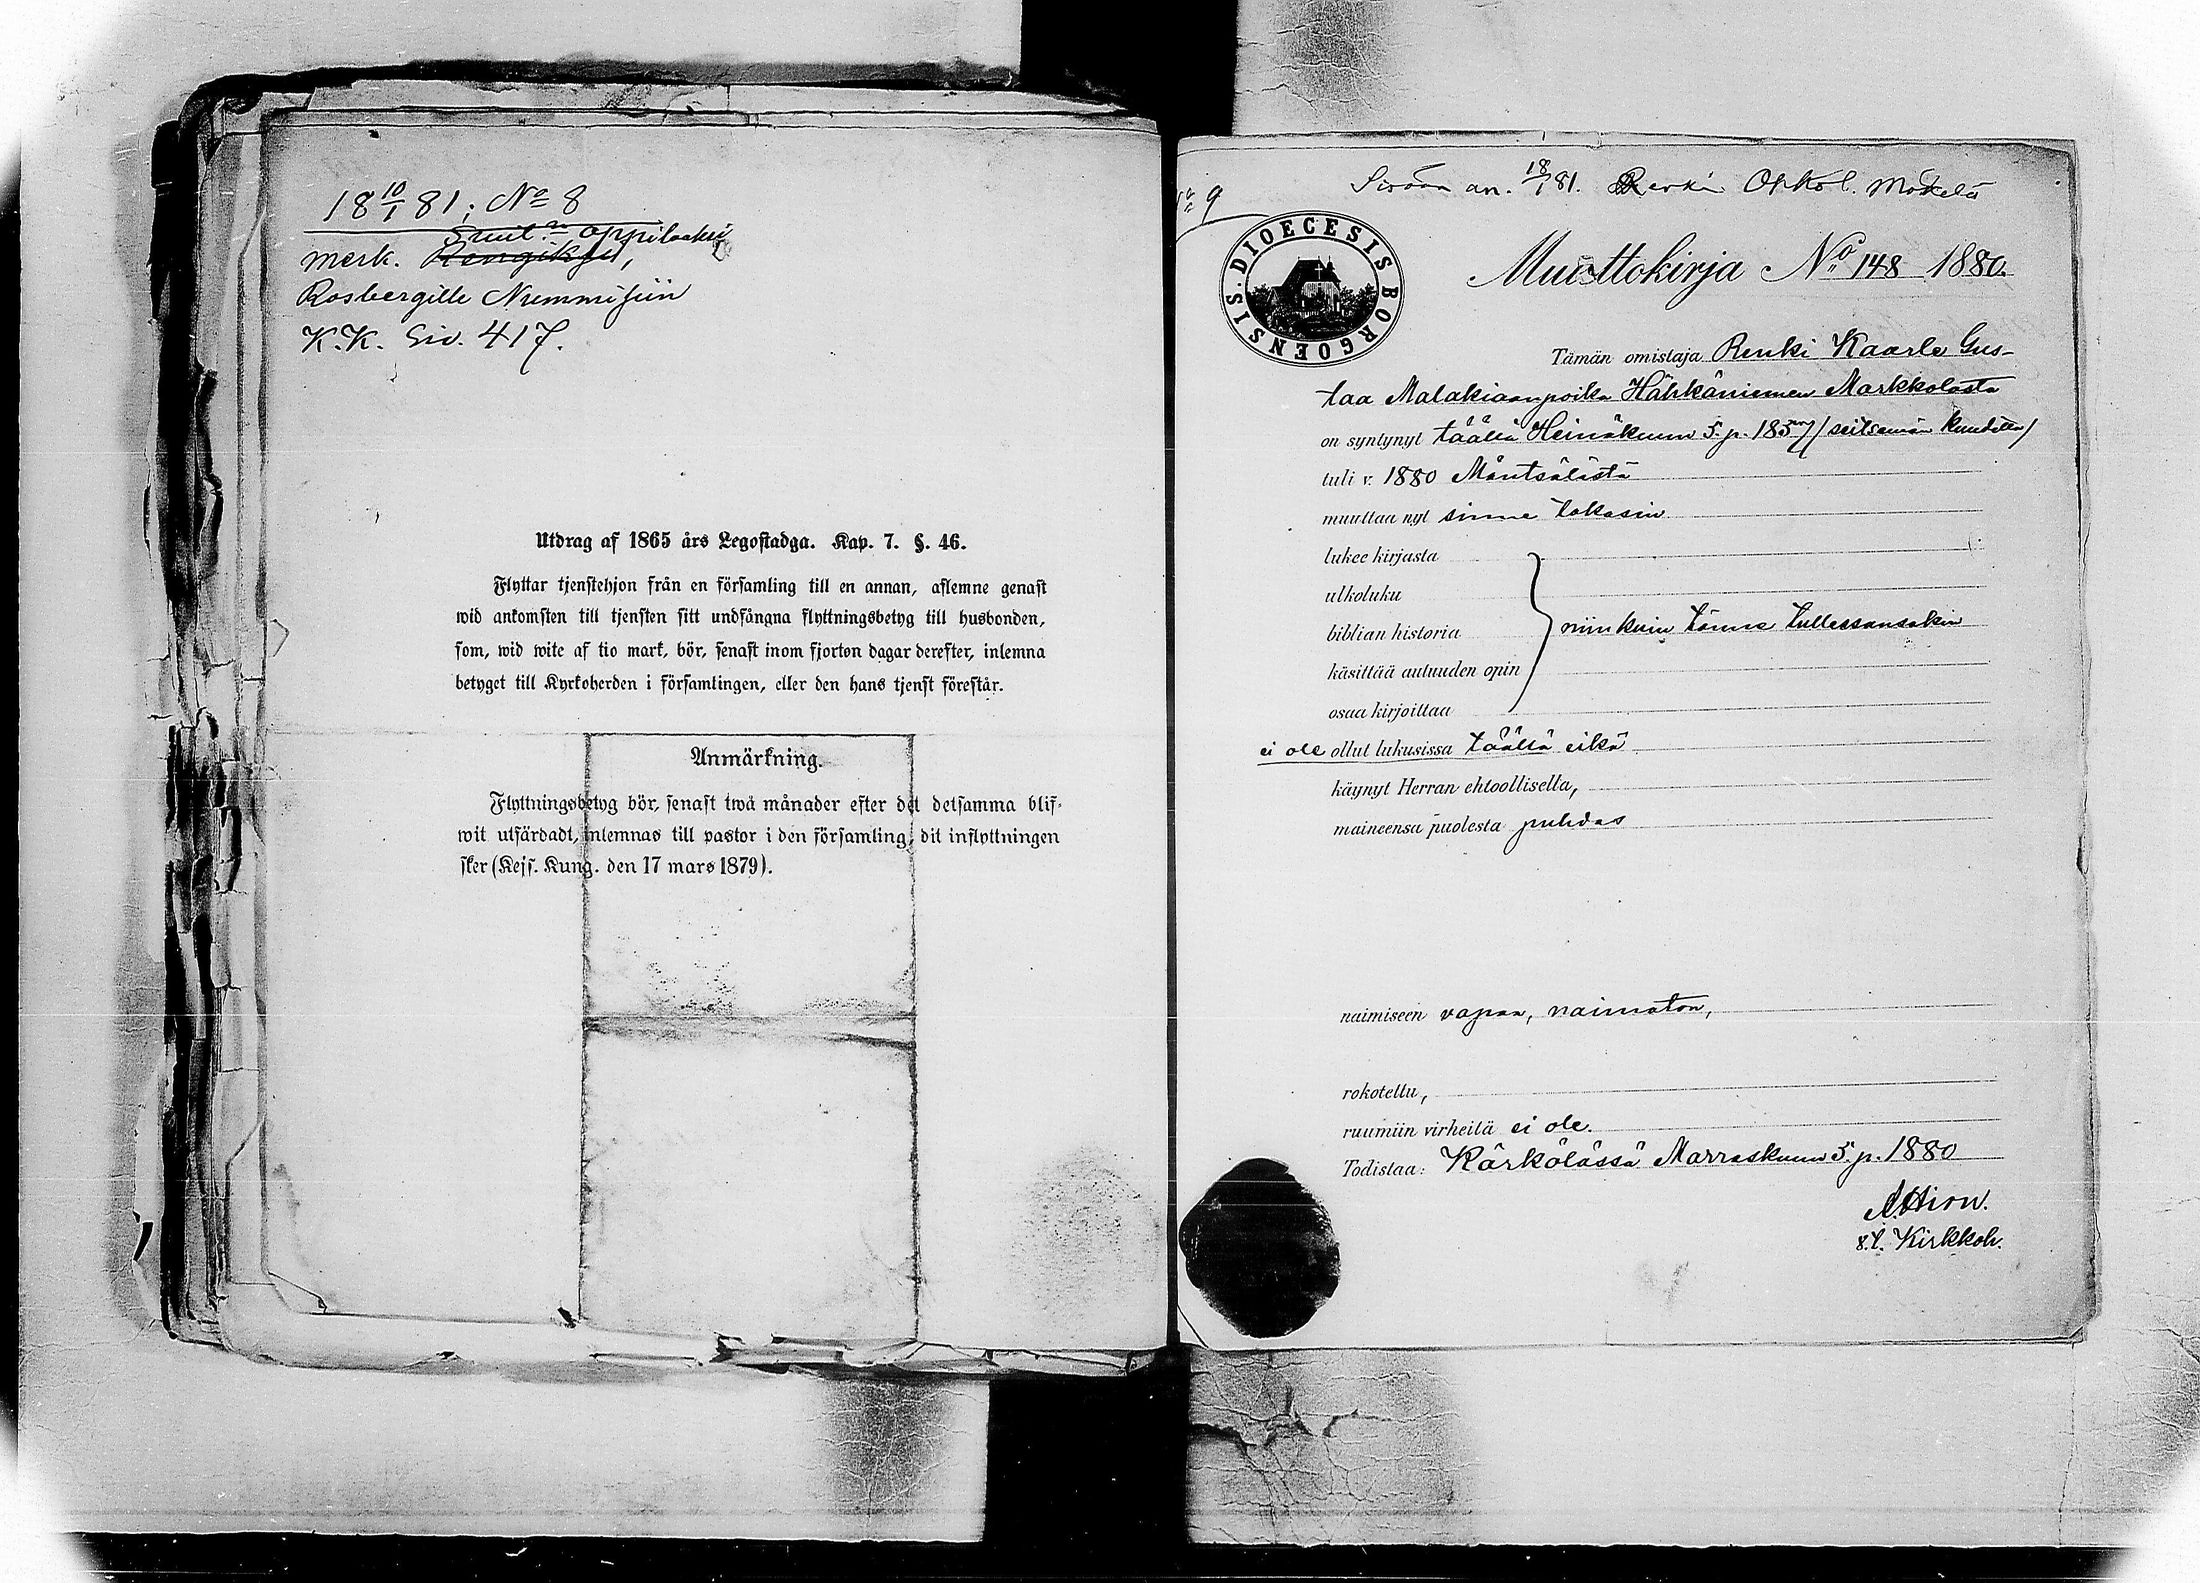 18 10/1 81; No 8
oppilaaksi
merk. Rengiksi,
Rosbergille Nummisiin
K.K. Siv. 417.
Utdrag af 1865 års Legostadga. Kap. 7. §. 46.
Flyttar tjenstehjon från en församling till en annan, aflemne genast
wid ankomsten till tjensten sitt undfångna flyttningsbetyg till husbonden,
som, wid wite af tio mark, bör, senast inom fjorton dagar derefter, inlemna
betyget till Kyrkoherden i församlingen, eller den hans tjenst förestår.
Anmärkning.
Flyttningsbetyg bör, senast twå månader efter det detsamma blif-
wit utfärdadt, inlemnas till pastor i den församling, dit inflyttningen
sker (Kejs. Kung. den 17 mars 1879).
No 9
an. 18/1 81. Renki Mäkelä
DIOECESIS BORGOENSIS.
Muuttokirja No 148 1880.
Tämän omistaja Renki Kaarle Gus-
taa Malakiaanpoika Hähkäniemen Markkolasta
on syntynyt täällä Heinäkuun 5. p. 1857 /seitsemän kuudetta/
tuli v. 1880 Mäntsälästä
muuttaa nyt sinne takasin
lukee kirjasta
ulkoluku
biblian historia niinkuin tänne tullessansakin
käsittää autuuden opin
osaa kirjoittaa
ei ole ollut lukusissa täällä eikä
käynyt Herran ehtoollisella,
maineensa puolesta puhdas
naimiseen vapaa, naimaton,
rokotettu,
ruumiin virheitä ei ole.
Todistaa: Kärkölässä Marraskuun 5. p. 1880
A. Hirn.
v.t. Kirkkoh.